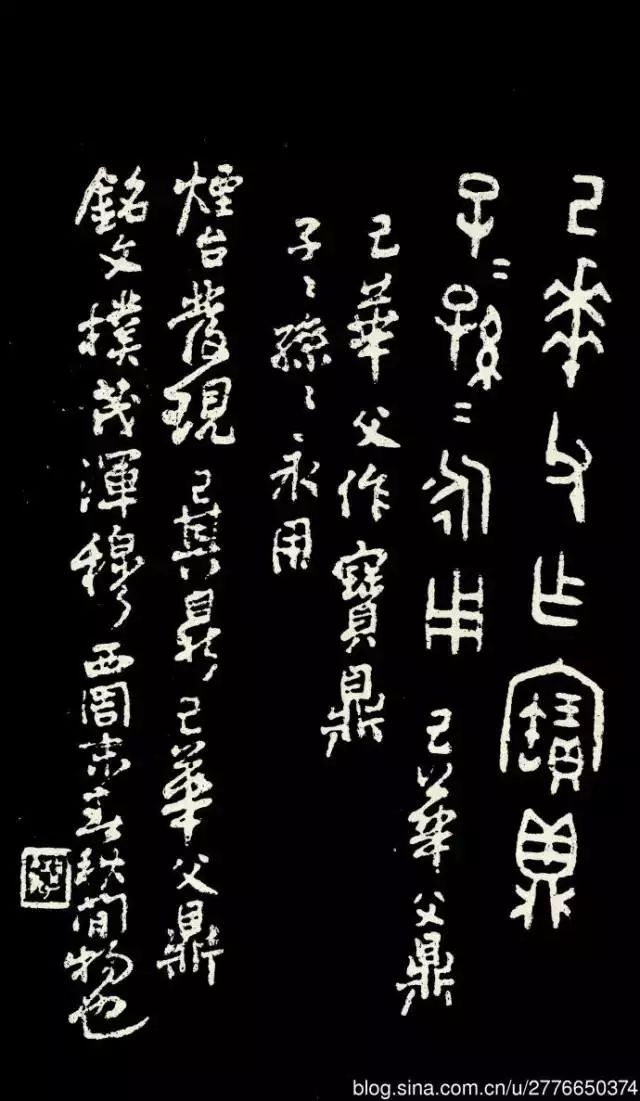 己華父乍寶鼎
子=孫=永用 己華父鼎
己華父作寶鼎
子〻孫〻永用
煙台發現㠱鼎己華父鼎
銘文樸茂渾穆西周末春秋間物也
blog.sina.com.cn/u/2776650374